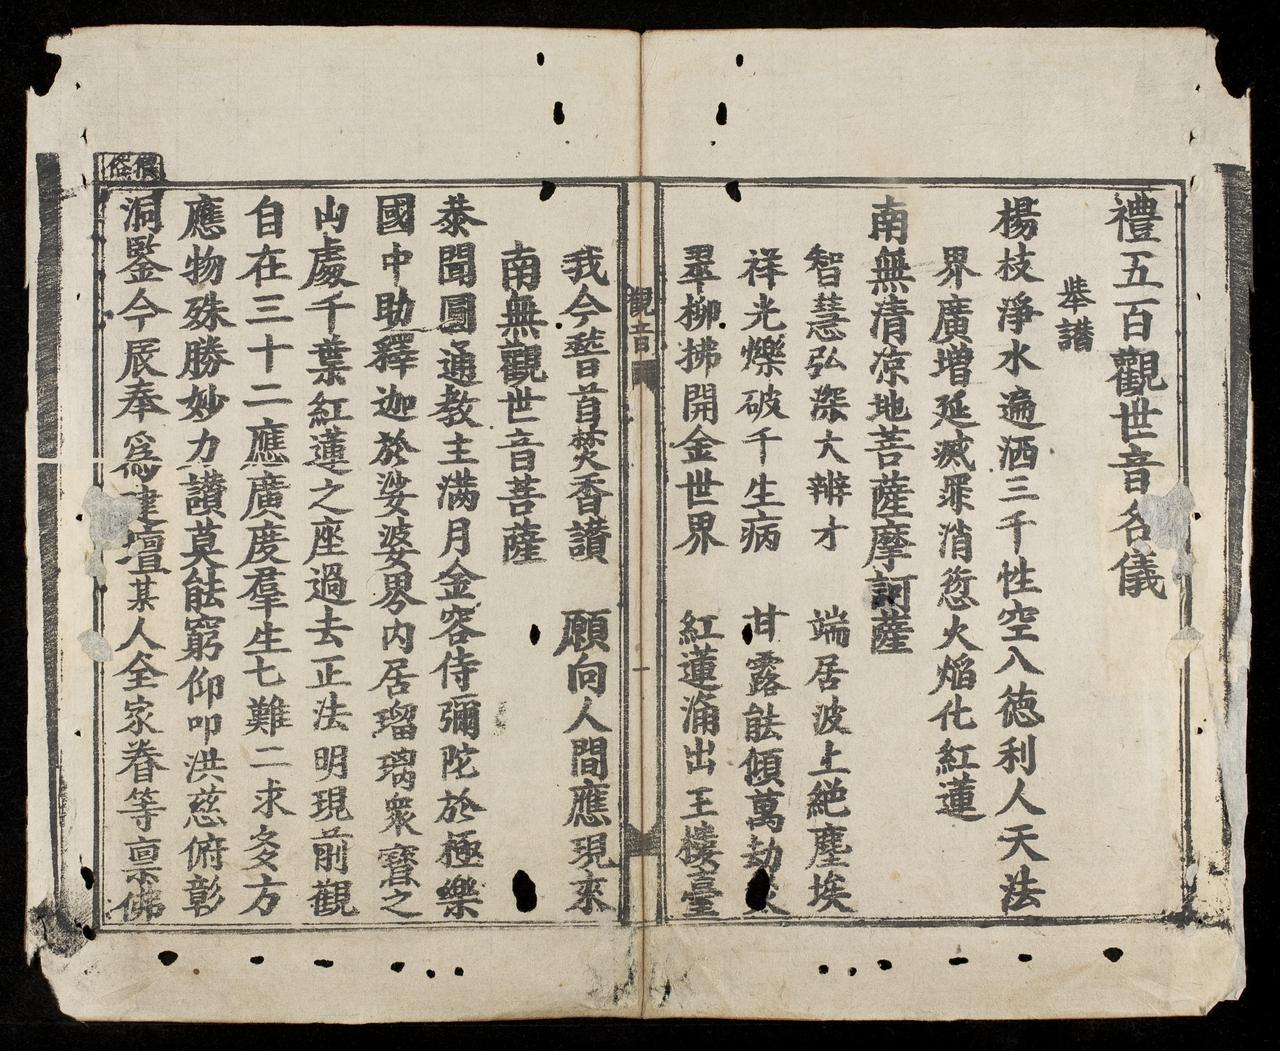 禮五百觀世音名儀
举讃
楊枝淨水遍洒三千性空八徳利人天法
界廣增延滅罪消愆火焰化紅蓮
南無清凉地菩薩摩訶薩
智慧弘深大辨才 端居波上絶塵埃
祥光爍破千生病 甘露能傾萬劫
翠柳拂開金世界 紅蓮涌出王樓臺
觀音
一
我今䭫首焚香讃 願向人間應現來
南無觀世音菩薩
恭聞圓通教主滿月金容侍彌陀於極樂
國中助釋迦於娑婆界内居瑠璃衆寳之
山處千葉紅蓮之座過去正法明現前觀
自在三十二應廣度羣生七難二求多方
應物殊勝妙力讃莫能窮仰叩洪慈俯彰
洞鑒今辰奉爲建壇某人全家眷等禀佛